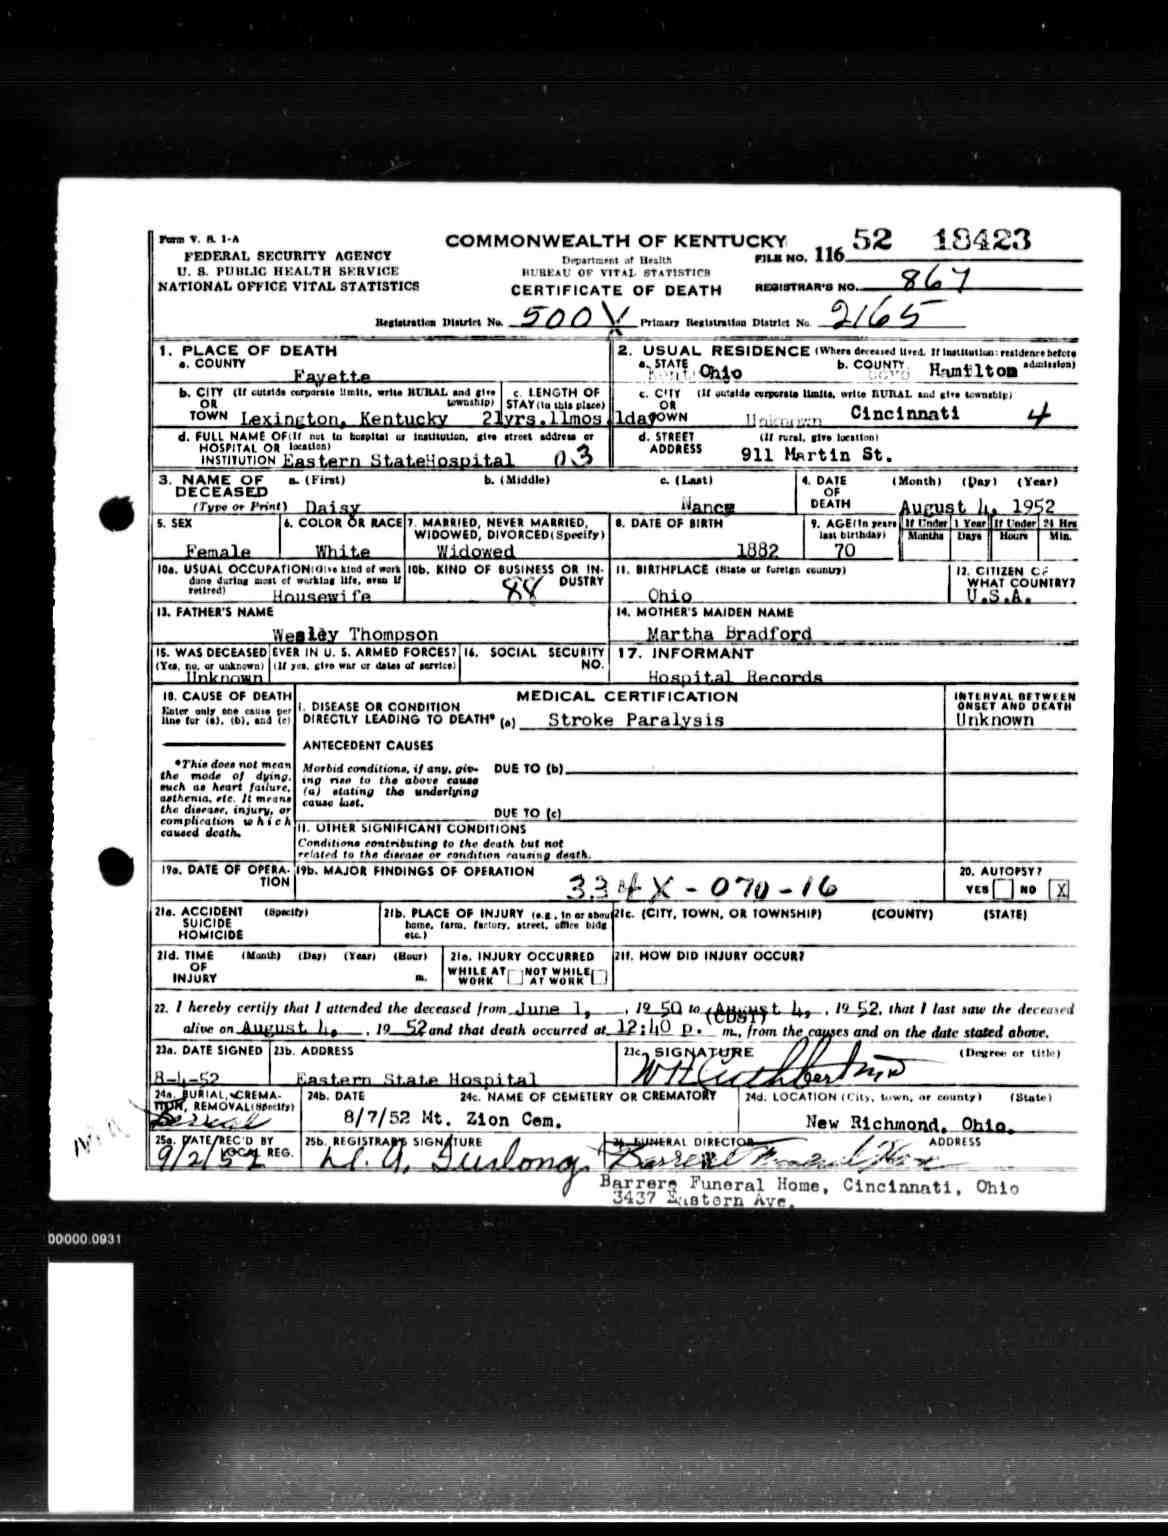 Form V. S. 1-A
FEDERAL SECURITY AGENCY
U. S. PUBLIC HEALTH SERVICE
NATIONAL OFFICE VITAL STATISTICS
COMMONWEALTH OF KENTUCKY
Department of Health
BUREAU OF VITAL STATISTICS
CERTIFICATE OF DEATH
FILE NO. 116 52 18423
REGISTRAR'S NO. 867
Registration District No. 500 Primary Registration District No. 2165
1. PLACE OF DEATH
a. COUNTY
Fayette
2. USUAL RESIDENCE (Where deceased lived. If institution: residence before admission)
a. STATE Ohio b. COUNTY Hamilton
b. CITY (If outside corporate limits, write RURAL and give township)
OR
TOWN Lexington, Kentucky
c. LENGTH OF STAY (in this place)
21yrs.11mos 1day
c. CITY (If outside corporate limits, write RURAL and give township)
OR
TOWN Unknown Cincinnati 4
d. FULL NAME OF (If not in hospital or institution, give street address or location)
HOSPITAL OR
INSTITUTION Eastern State Hospital 03
d. STREET ADDRESS (If rural, give location)
911 Martin St.
3. NAME OF DECEASED (Type or Print)
a. (First) b. (Middle) c. (Last)
Daisy Nance
4. DATE OF DEATH (Month) (Day) (Year)
August 4, 1952
5. SEX
Female
6. COLOR OR RACE
White
7. MARRIED, NEVER MARRIED, WIDOWED, DIVORCED (Specify)
Widowed
8. DATE OF BIRTH
1882
9. AGE (In years last birthday)
70
If Under 1 Year If Under 24 Hrs
Months Days Hours Min.
10a. USUAL OCCUPATION (Give kind of work done during most of working life, even if retired)
Housewife
10b. KIND OF BUSINESS OR INDUSTRY
88
11. BIRTHPLACE (State or foreign country)
Ohio
12. CITIZEN OF WHAT COUNTRY?
U.S.A.
13. FATHER'S NAME
Wesley Thompson
14. MOTHER'S MAIDEN NAME
Martha Bradford
15. WAS DECEASED EVER IN U. S. ARMED FORCES?
(Yes, no, or unknown) (If yes, give war or dates of service)
Unknown
16. SOCIAL SECURITY NO.
17. INFORMANT
Hospital Records
18. CAUSE OF DEATH
Enter only one cause per line for (a), (b), and (c)
*This does not mean the mode of dying, such as heart failure, asthenia, etc. It means the disease, injury, or complication which caused death.
MEDICAL CERTIFICATION
INTERVAL BETWEEN ONSET AND DEATH
I. DISEASE OR CONDITION
DIRECTLY LEADING TO DEATH* (a) Stroke Paralysis
Unknown
ANTECEDENT CAUSES
Morbid conditions, if any, giving rise to the above cause (a) stating the underlying cause last.
DUE TO (b)
DUE TO (c)
II. OTHER SIGNIFICANT CONDITIONS
Conditions contributing to the death but not related to the disease or condition causing death.
19a. DATE OF OPERATION
19b. MAJOR FINDINGS OF OPERATION
334X - 070 - 16
20. AUTOPSY?
YES NO X
21a. ACCIDENT (Specify)
SUICIDE
HOMICIDE
21b. PLACE OF INJURY (e.g., in or about home, farm, factory, street, office bldg etc.)
21c. (CITY, TOWN, OR TOWNSHIP) (COUNTY) (STATE)
21d. TIME OF INJURY (Month) (Day) (Year) (Hour) m.
21e. INJURY OCCURRED
WHILE AT WORK NOT WHILE AT WORK
21f. HOW DID INJURY OCCUR?
22. I hereby certify that I attended the deceased from June 1, , 1950 to August 4, , 1952, that I last saw the deceased
(CDST)
alive on August 4, , 1952 and that death occurred at 12:40 p. m., from the causes and on the date stated above.
23a. DATE SIGNED
8-4-52
23b. ADDRESS
Eastern State Hospital
23c. SIGNATURE (Degree or title)
W H Cuthbert MD
24a. BURIAL, CREMATION, REMOVAL (Specify)
Burial
24b. DATE
8/7/52
24c. NAME OF CEMETERY OR CREMATORY
Mt. Zion Cem.
24d. LOCATION (City, town, or county) (State)
New Richmond, Ohio.
25a. DATE REC'D BY LOCAL REG.
9/2/52
25b. REGISTRAR'S SIGNATURE
FUNERAL DIRECTOR ADDRESS
Barrere Funeral Home
Barrere Funeral Home, Cincinnati, Ohio
3437 Eastern Ave.
00000.0931